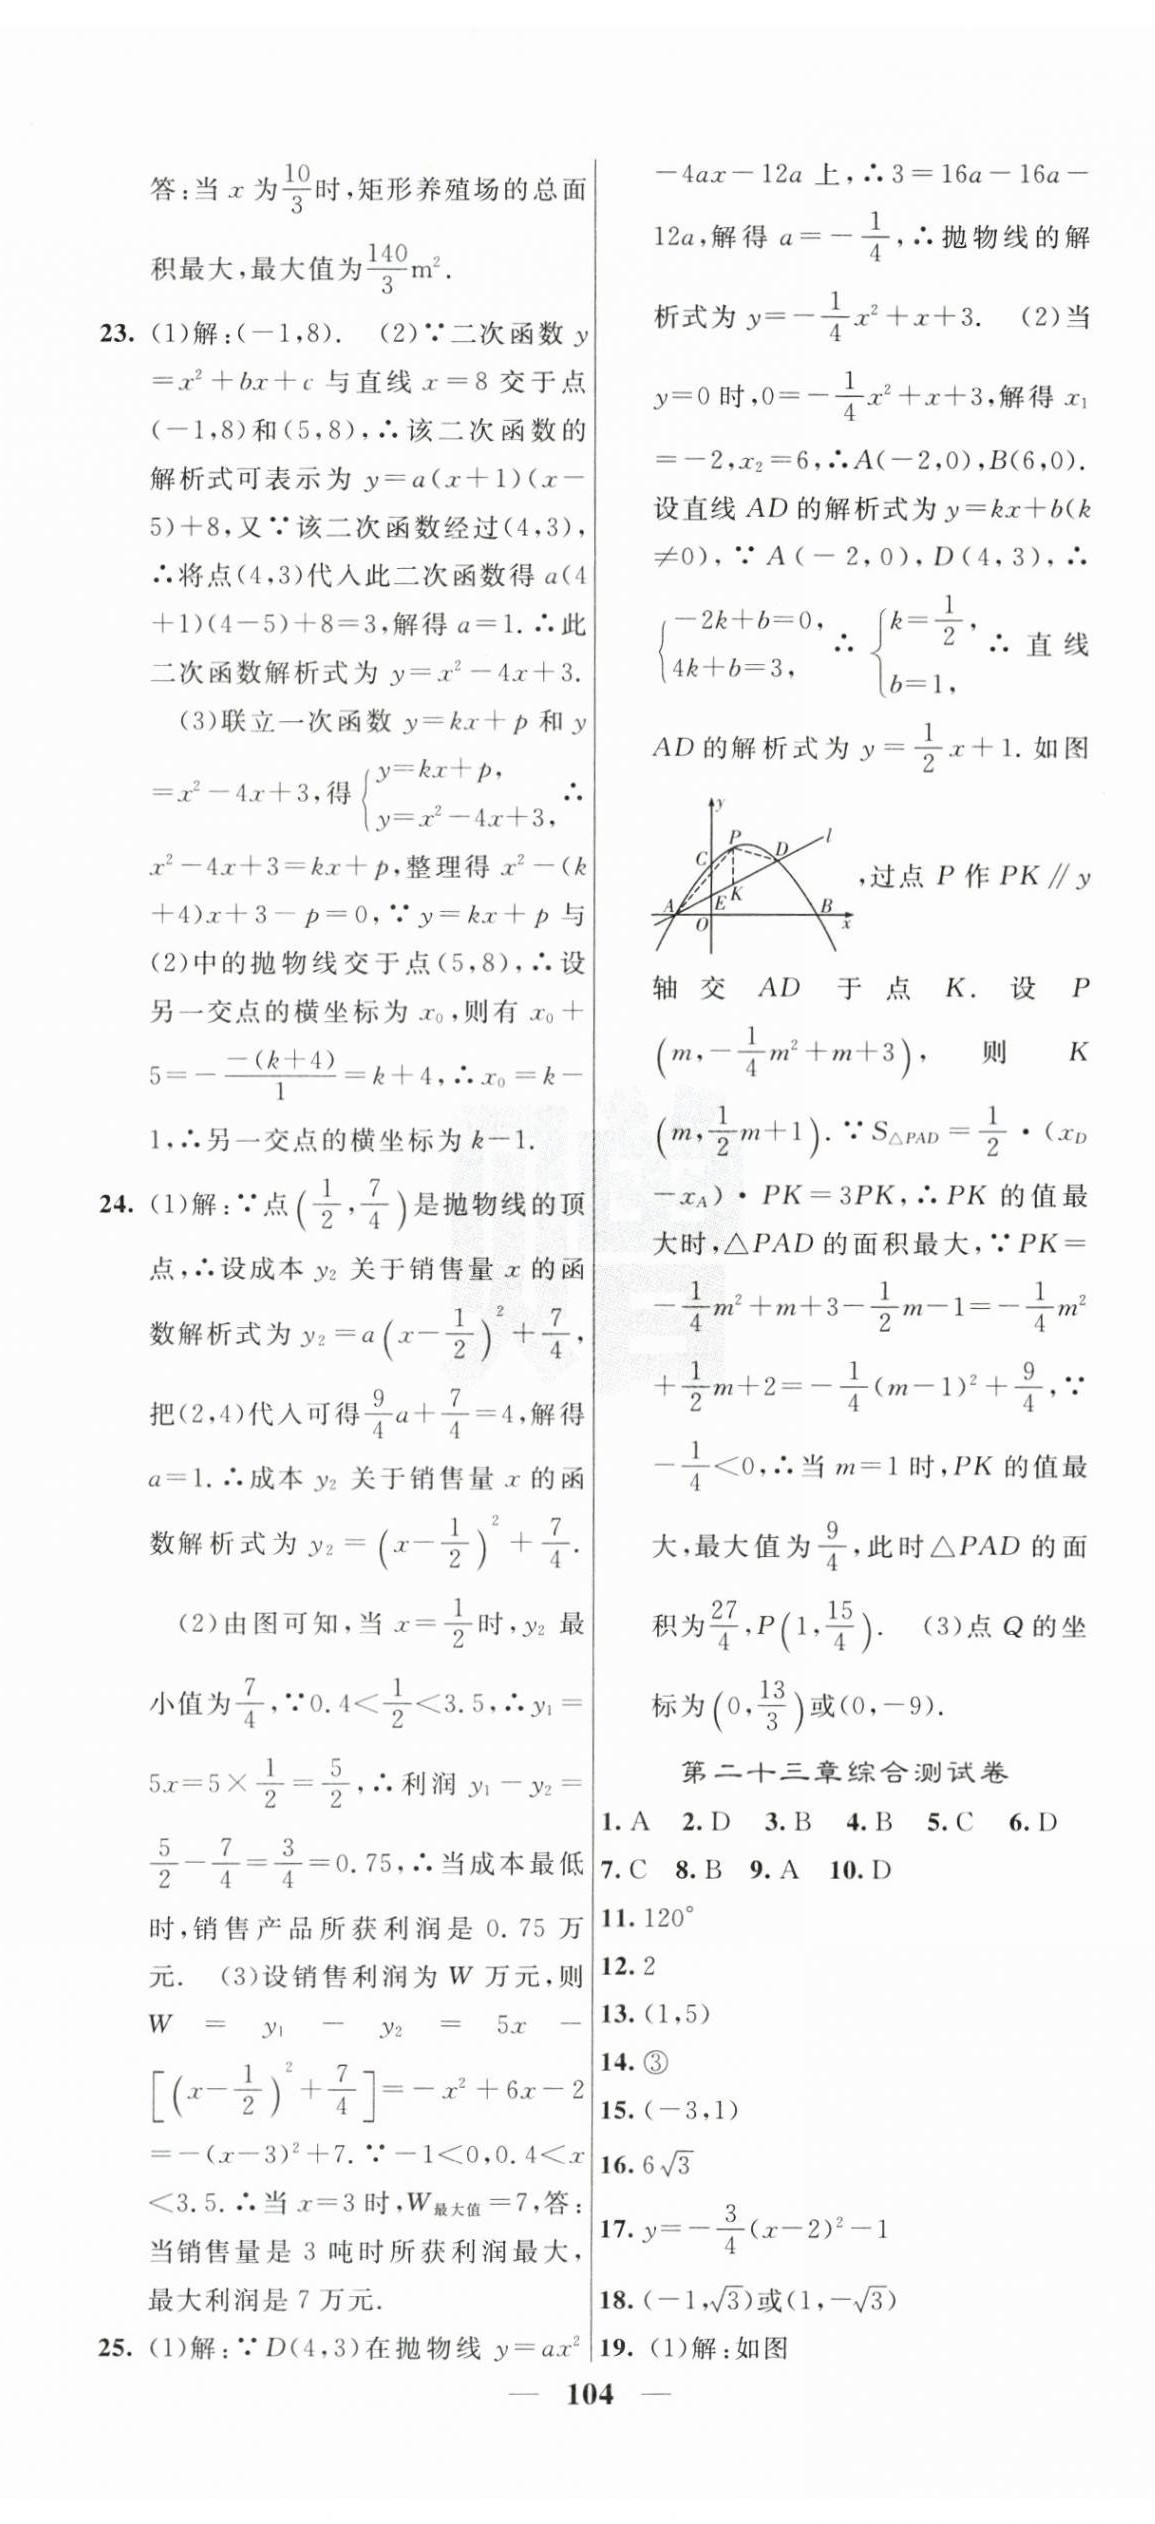 答:当 x 为10/3时,矩形养殖场的总面
积最大,最大值为140/3 m².
23. (1)解:(-1,8). (2)∵二次函数 y
=x²+bx+c 与直线 x=8 交于点
(-1,8)和(5,8),∴该二次函数的
解析式可表示为 y=a(x+1)(x-
5)+8,又∵该二次函数经过(4,3),
∴将点(4,3)代入此二次函数得 a(4
+1)(4-5)+8=3,解得 a=1.∴此
二次函数解析式为 y=x²-4x+3.
(3)联立一次函数 y=kx+p 和 y
=x²-4x+3,得{y=kx+p, y=x²-4x+3, ∴
x²-4x+3=kx+p,整理得 x²-(k
+4)x+3-p=0,∵y=kx+p 与
(2)中的抛物线交于点(5,8),∴设
另一交点的横坐标为 x₀,则有 x₀+
5=- -(k+4)/1 =k+4,∴x₀=k-
1,∴另一交点的横坐标为 k-1.
24. (1)解:∵点(1/2,7/4)是抛物线的顶
点,∴设成本 y₂ 关于销售量 x 的函
数解析式为 y₂=a(x-1/2)²+7/4,
把(2,4)代入可得9/4 a+7/4=4,解得
a=1.∴成本 y₂ 关于销售量 x 的函
数解析式为 y₂=(x-1/2)²+7/4.
(2)由图可知,当 x=1/2时,y₂ 最
小值为7/4,∵0.4<1/2<3.5,∴y₁=
5x=5×1/2=5/2,∴利润 y₁-y₂=
5/2-7/4=3/4=0.75,∴当成本最低
时,销售产品所获利润是 0.75 万
元. (3)设销售利润为 W 万元,则
W = y₁ - y₂ = 5x -
[(x-1/2)²+7/4]=-x²+6x-2
=-(x-3)²+7.∵-1<0,0.4<x
<3.5.∴当 x=3 时,W最大值=7,答:
当销售量是 3 吨时所获利润最大,
最大利润是 7 万元.
25. (1)解:∵D(4,3)在抛物线 y=ax²
-4ax-12a 上,∴3=16a-16a-
12a,解得 a=-1/4,∴抛物线的解
析式为 y=-1/4 x²+x+3. (2)当
y=0 时,0=-1/4 x²+x+3,解得 x₁
=-2,x₂=6,∴A(-2,0),B(6,0).
设直线 AD 的解析式为 y=kx+b(k
≠0),∵A(-2,0),D(4,3),∴
{-2k+b=0, 4k+b=3, ∴ {k=1/2, b=1, ∴直线
AD 的解析式为 y=1/2 x+1.如图
y
P
D
l
C
E
K
A
O
B
x
,过点 P 作 PK∥y
轴交 AD 于点 K. 设 P
(m,-1/4 m²+m+3), 则 K
(m,1/2 m+1).∵S△PAD=1/2·(xD
-xA)·PK=3PK,∴PK 的值最
大时,△PAD 的面积最大,∵PK=
-1/4 m²+m+3-1/2 m-1=-1/4 m²
+1/2 m+2=-1/4(m-1)²+9/4,∵
-1/4<0,∴当 m=1 时,PK 的值最
大,最大值为9/4,此时△PAD 的面
积为27/4,P(1,15/4). (3)点 Q 的坐
标为(0,13/3)或(0,-9).
第二十三章综合测试卷
1. A 2. D 3. B 4. B 5. C 6. D
7. C 8. B 9. A 10. D
11. 120°
12. 2
13. (1,5)
14. ③
15. (-3,1)
16. 6√3
17. y=-3/4(x-2)²-1
18. (-1,√3)或(1,-√3)
19. (1)解:如图
— 104 —